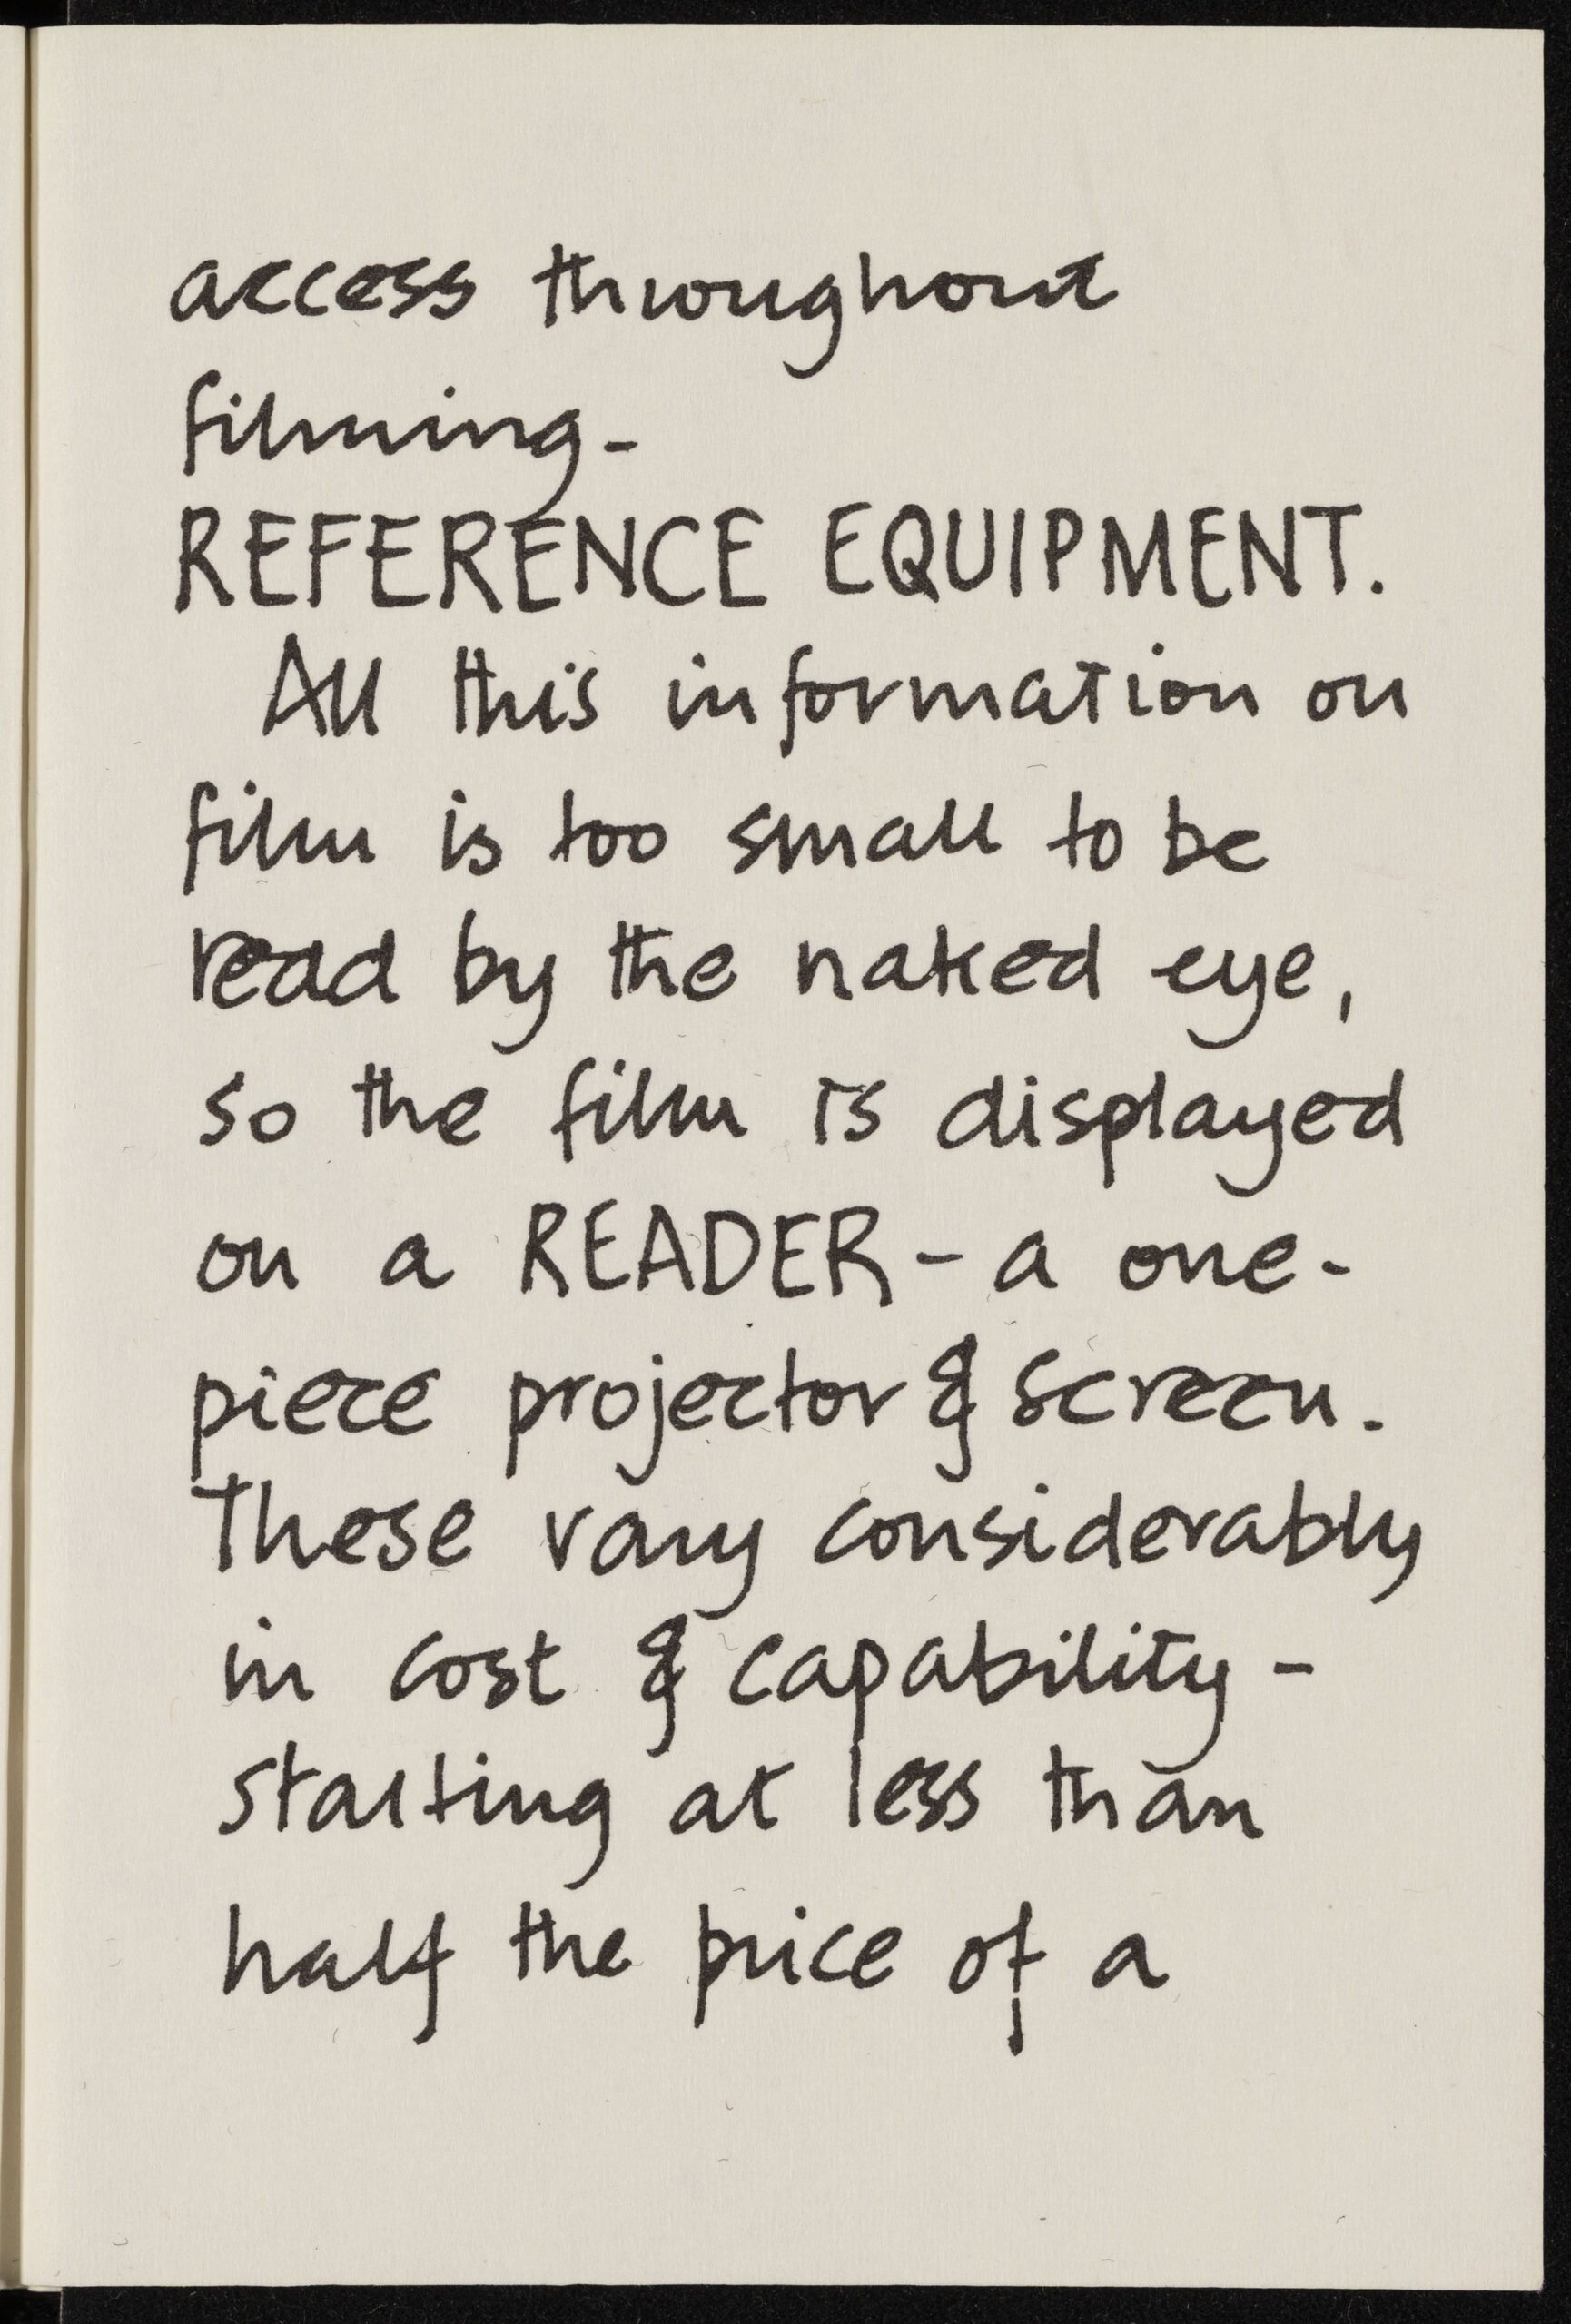 access throughout
filming-
REFERENCE EQUIPMENT.
All this information on
film is too small to be
read by the naked eye,
so the film is displayed
on a READER - a one-
piece projector & screen.
These vary considerably
in cost & capability -
starting at less than
half the price of a